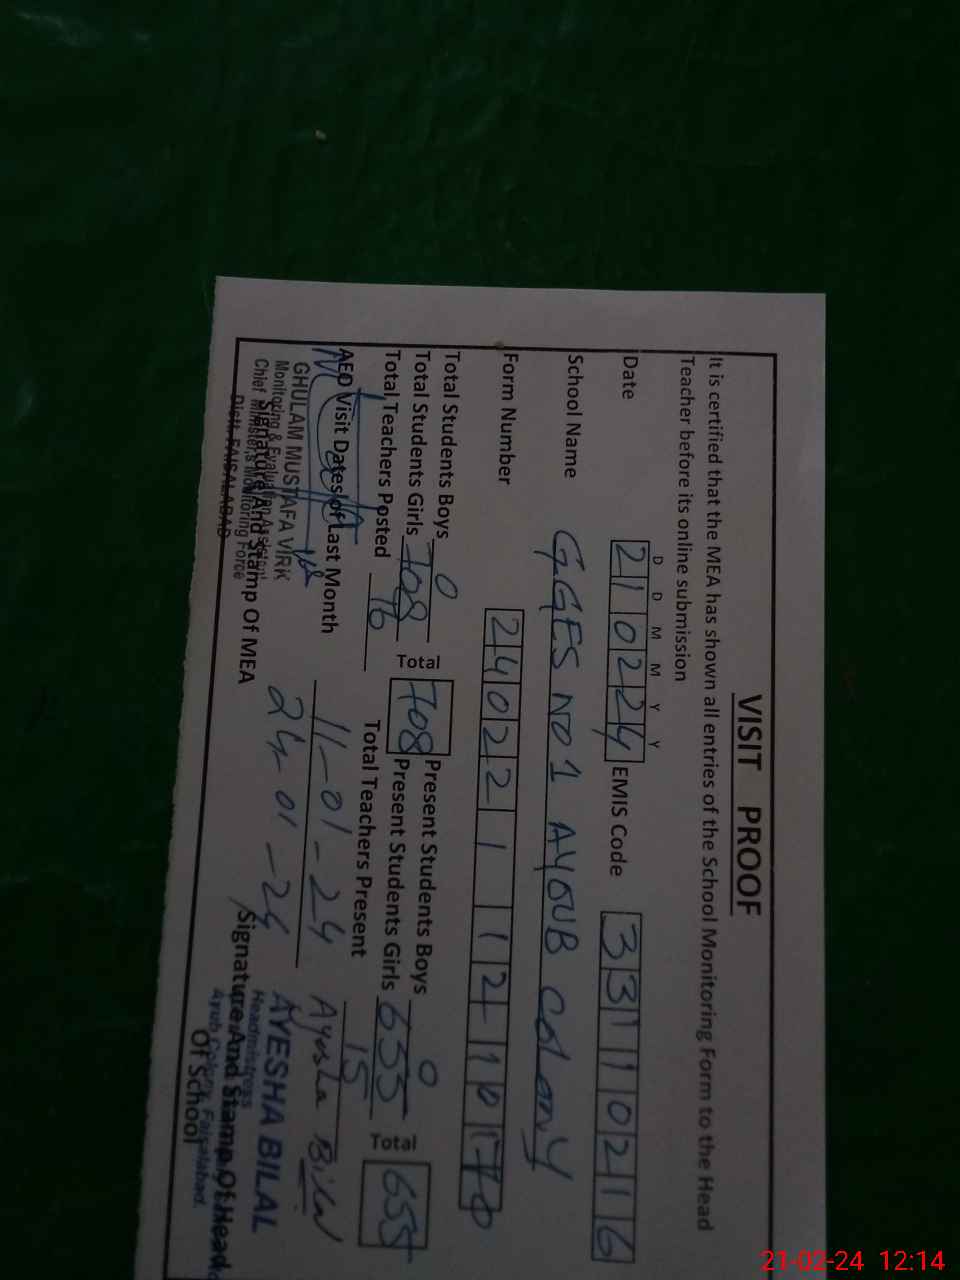 VISIT PROOF
It is certified that the MEA has shown all entries of the School Monitoring Form to the Head
Teacher before its online submission
D D M M Y Y
Date 210224 EMIS Code 33110216
School Name GGES NO 1 AYOUB Colony
Form Number 2402211210170
Total Students Boys 0 Present Students Boys 0
Total Students Girls 708 Total 708 Present Students Girls 655 Total 655
Total Teachers Posted 16 Total Teachers Present 15
AEO Visit Dates of Last Month 11-01-24 Ayesha Bilal
24-01-24
GHULAM MUSTAFA VIRK
Monitoring & Evaluation Assistant
Chief Minister,s Monitoring Force
Distt. FAISALABAD
Signature And Stamp Of MEA
AYESHA BILAL
Headmistress
Ayub Colony, Faisalabad.
Signature And Stamp Of Head
Of School
21-02-24 12:14